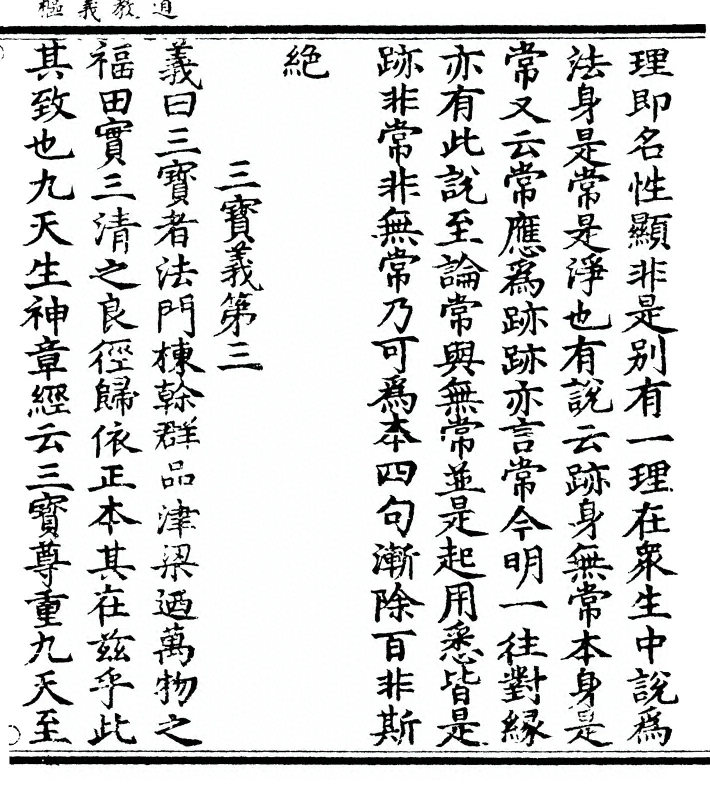 道教義樞
理即名性顯非是別有一理在衆生中說爲
法身是常是淨也有說云跡身無常本身是
常又云常應爲跡跡亦言常今明一往對緣
亦有此說至論常與無常並是起用悉皆是
跡非常非無常乃可爲本四句漸除百非斯
絕
三寶義第三
義曰三寶者法門棟幹群品津梁迺萬物之
福田實三清之良徑歸依正本其在茲乎此
其致也九天生神章經云三寶尊重九天至